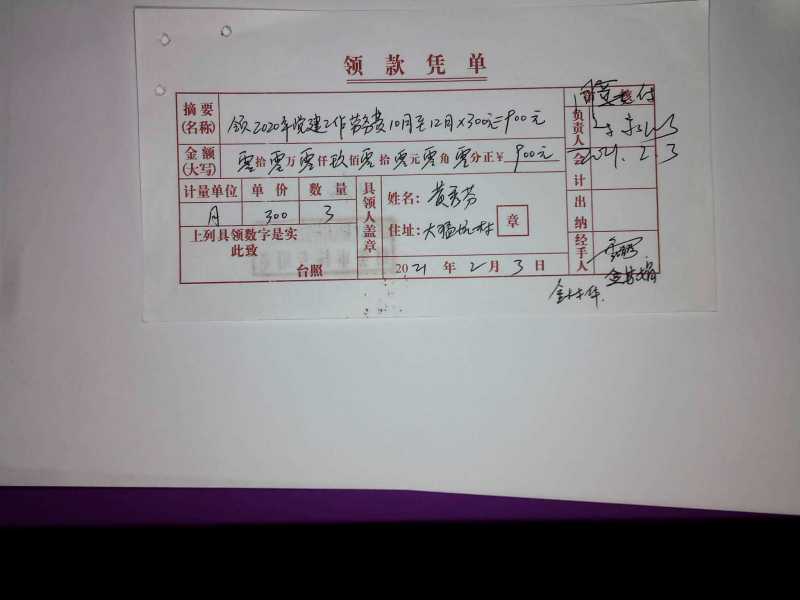 领款凭单
摘要(名称) 领2020年党建工作劳务费10月至12月×300元=900元
金额(大写) 零拾零万零仟玖佰零拾零元零角零分正¥ 900元
计量单位 单价 数量
月 300 3
上列具领数字是实
此致
台照
具领人盖章
姓名: 黄秀芬
住址: 大猫坑村
章
2021年2月3日
付
负责人
2021.2.3
会计
出纳
经手人